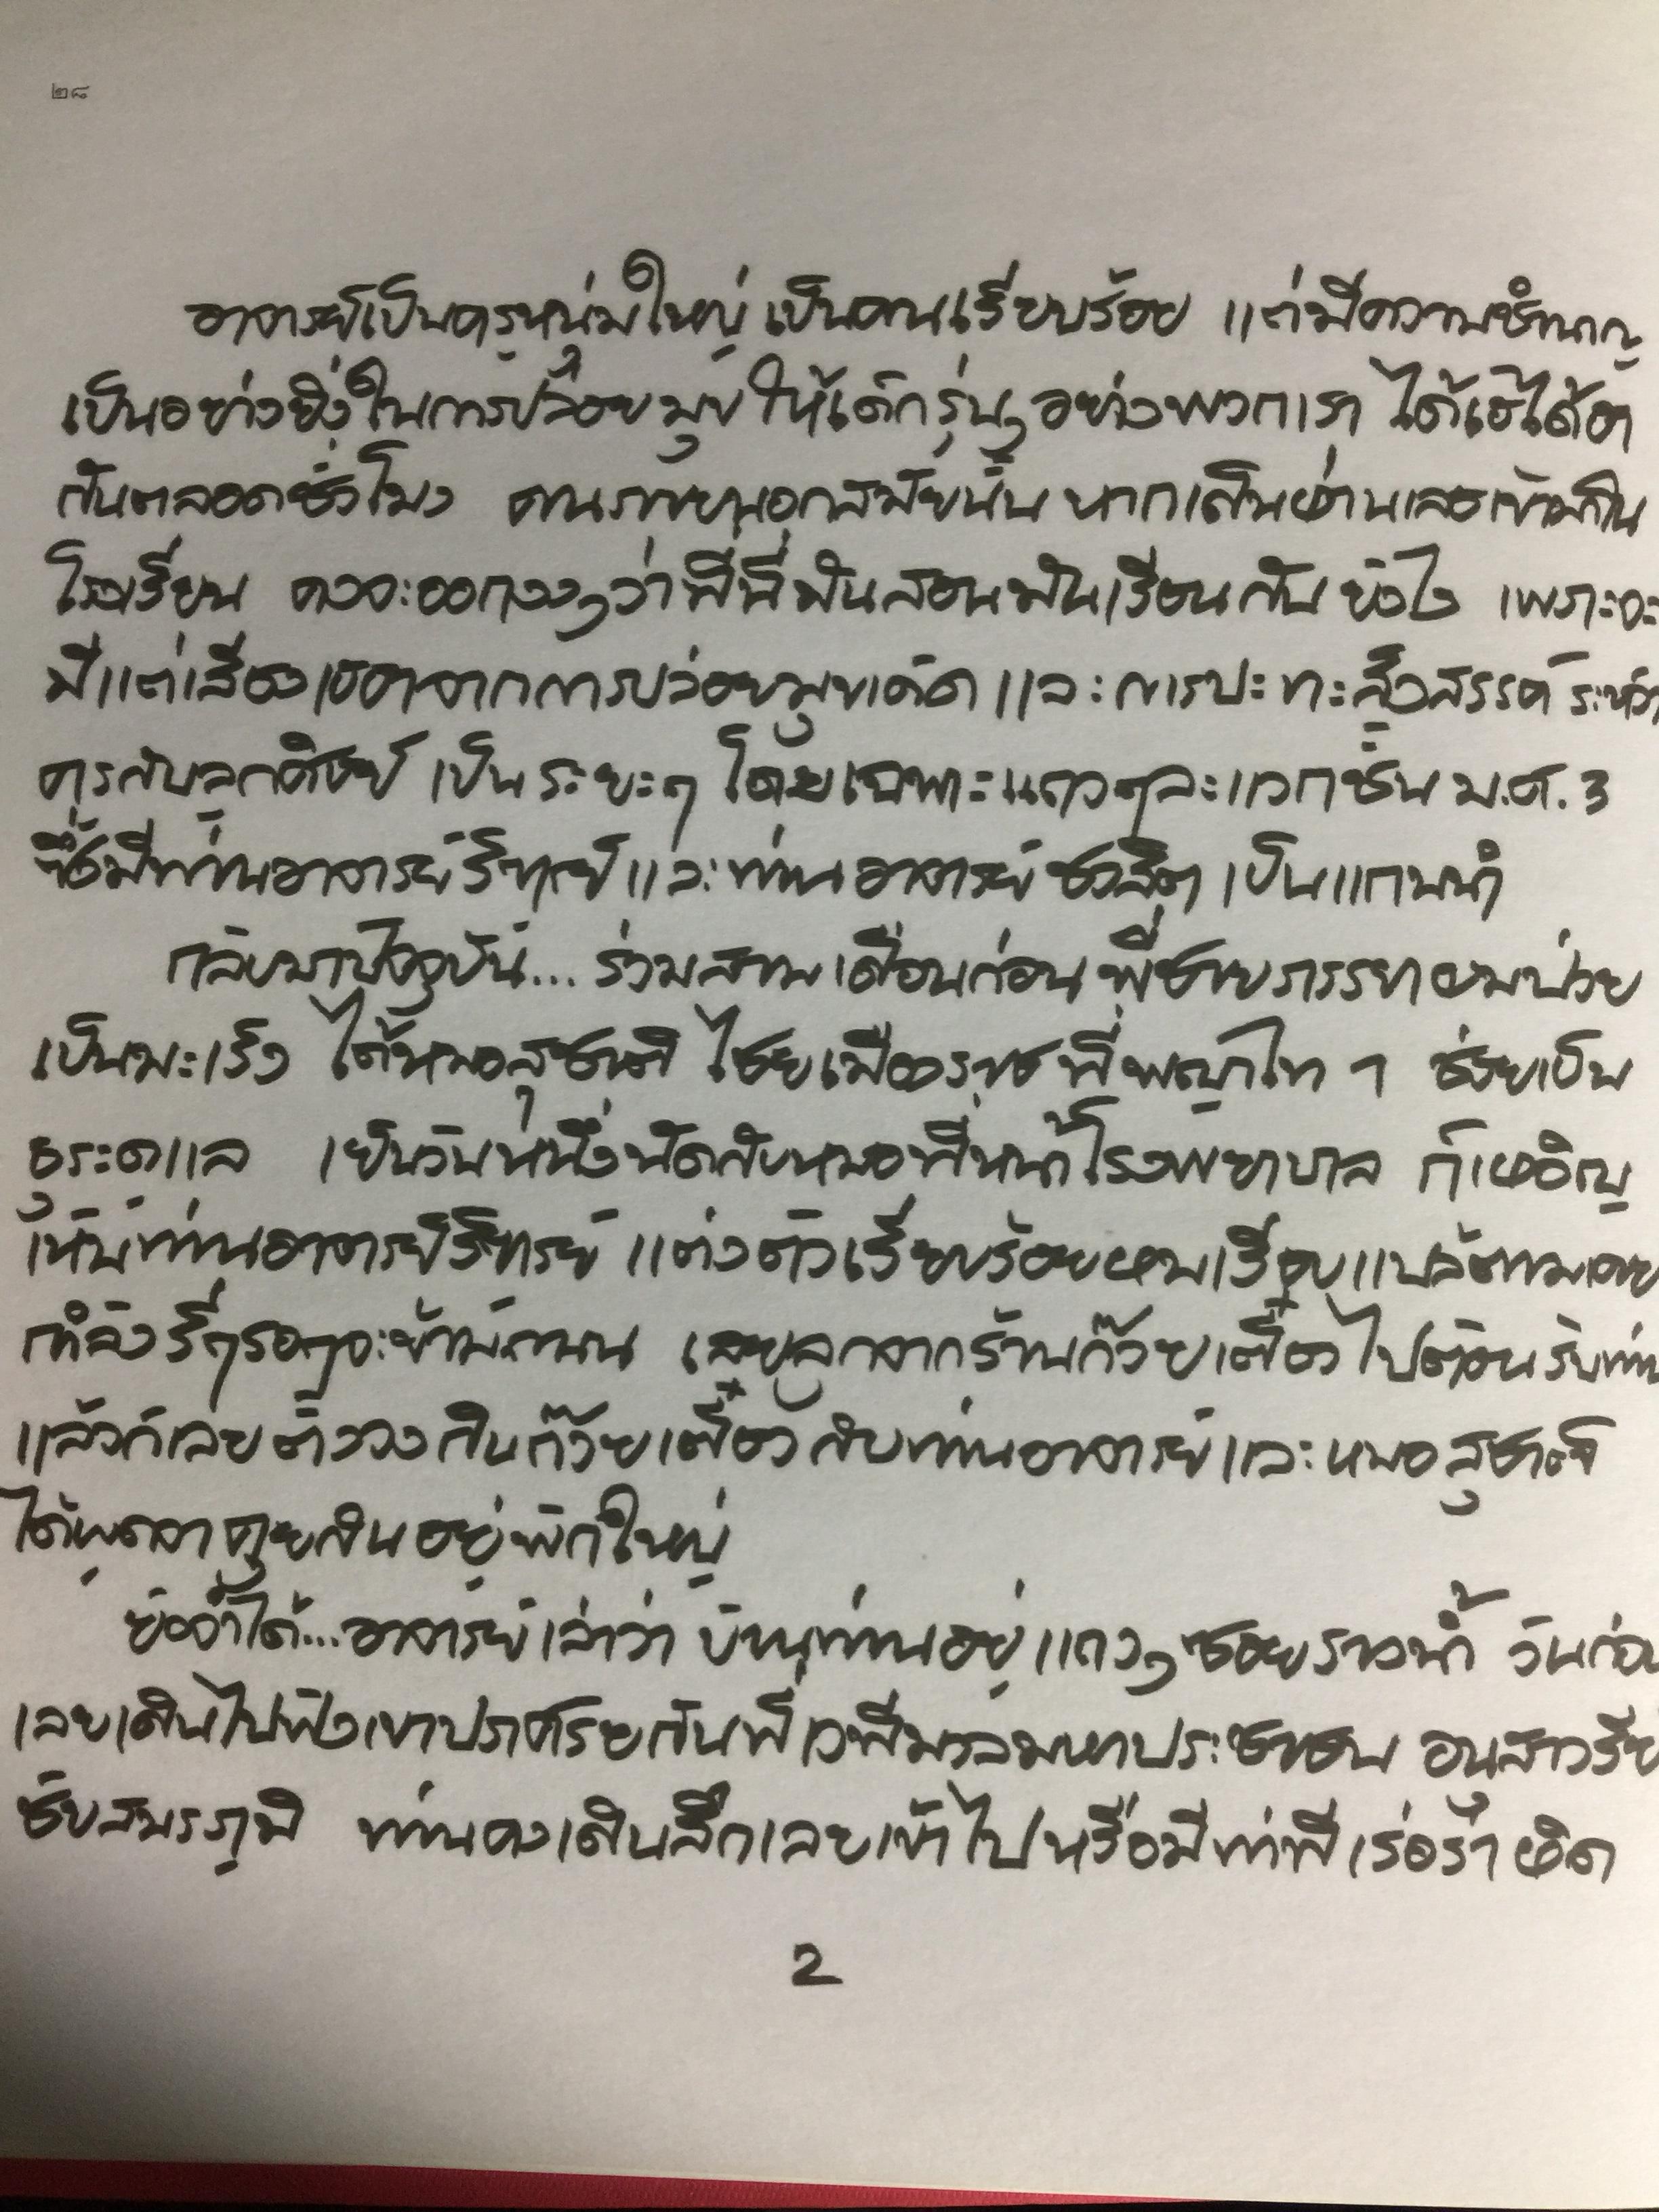 ๒๘
อาจารย์เป็นครูหนุ่มใหญ่ เป็นคนเรียบร้อย แต่มีความชำนาญ
เป็นอย่างยิ่งในการปล่อยมุข ให้เด็กรุ่นๆอย่างพวกเรา ได้เฮได้ฮา
กันตลอดชั่วโมง คนภายนอกสมัยนั้น หากเดินผ่านเลาะเข้ามาใน
โรงเรียน คงจะออกงงๆว่าที่นี่มันสอนมันเรียนกัน ยังไง เพราะจะ
มีแต่เสียงเฮฮาจากการปล่อยมุขเด็ด และการปะทะสังสรรค์ ระหว่า
ครูกับลูกศิษย์ เป็นระยะๆ โดยเฉพาะแถวๆละแวกชั้น ม.ศ. 3
ซึ่งมีท่านอาจารย์ และท่านอาจารย์ ชวลิต เป็นแกนนำ
กลับมาปัจจุบัน... ร่วมสามเดือนก่อน พี่ชายภรรยาผมป่วย
เป็นมะเร็ง ได้หมอสุชาติ ไชยเมืองราช ที่พญาไท ๑ ช่วยเป็น
ธุระดูแล เย็นวันหนึ่งนัดกับหมอที่หน้าโรงพยาบาล ก็เผอิญ
เห็นท่านอาจารย์ แต่งตัวเรียบร้อยผมเรียบแปล้ตามเคย
กำลังรีๆรอๆจะข้ามถนน เลยลุกจากร้านก๋วยเตี๋ยว ไปต้อนรับท่าน
แล้วก็เลย ตั้งวง กินก๋วยเตี๋ยว กับท่านอาจารย์ และหมอ สุชาติ
ได้พูดจา คุยกันอยู่พักใหญ่
ยังจำได้...อาจารย์เล่าว่า บ้านท่านอยู่แถวๆ ซอยรางน้ำ วันก่อน
เลยเดินไปฟังเขาปราศรัยกันที่เวทีมวลมหาประชาชน อนุสาวรีย์
ชัยสมรภูมิ ท่านคงเดินลึกเลยเข้าไป หรือมีท่าทีเร่อร่า ผิด
2